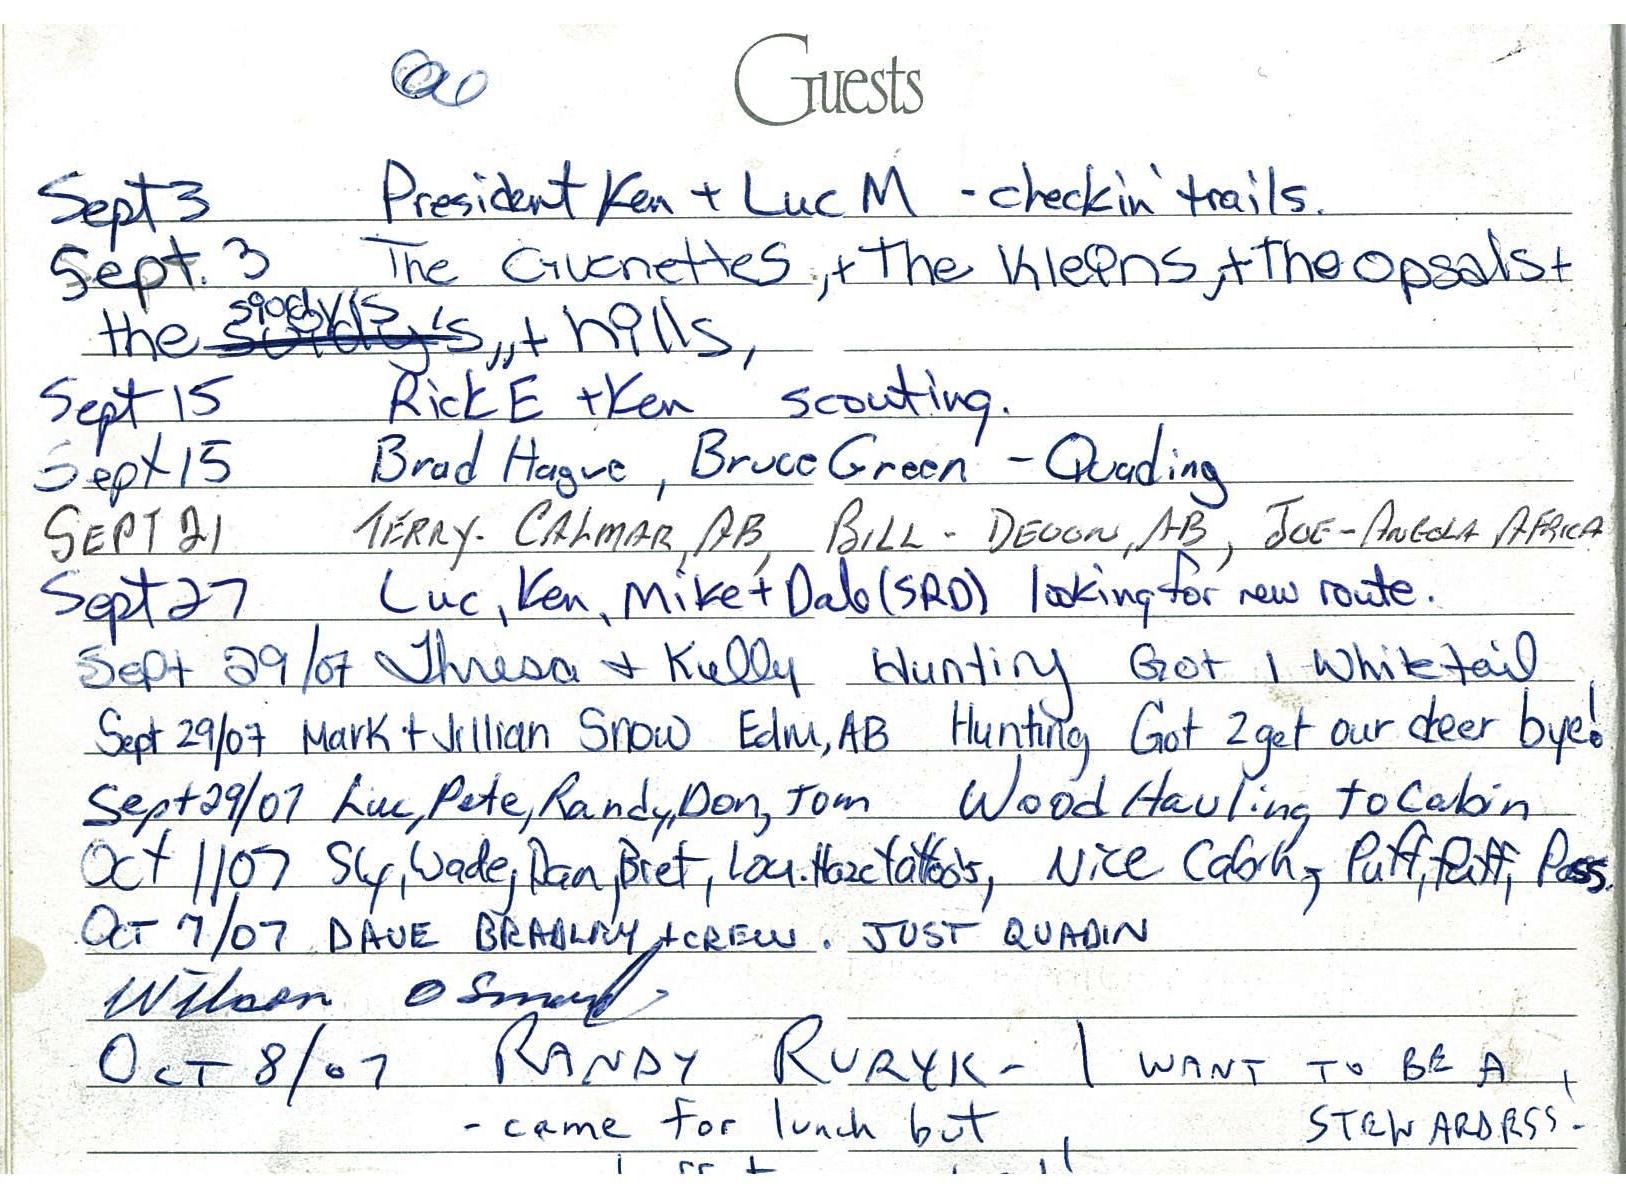 Guests
Sept 3 President Ken + Luc M - checkin' trails.
Sept. 3 The Guenettes, + The Kleins, + The opsals +
the
's,, + hills,
Sept 15 Rick E + Ken scouting.
Sept 15 Brad Hague, Bruce Green - Quading
SEPT 21 TERRY - CALMAR, AB, BILL - DEVON, AB, JOE - ANGOLA AFRICA
Sept 27 Luc, Ken, Mike + Dale (SRD) looking for new route.
Sept 29/07 Thresa + Kelly Hunting Got 1 Whitetail
Sept 29/07 Mark + Jillian Snow Edm, AB Hunting Got 2 get our deer bye!
Sept 29/07 Luc, Pete, Randy, Don, Tom Wood Hauling to Cabin
Oct 1/07 Sly, Wade, Dan, Bret, Lou. Haze Tattoo's, Nice Cabin, Puff, Puff, Pass.
OCT 7/07 DAVE BRADLEY + CREW. JUST QUADIN
Wilson
OCT 8/07 RANDY RURYK - I WANT TO BE A
STEWARDESS!
- came for lunch but